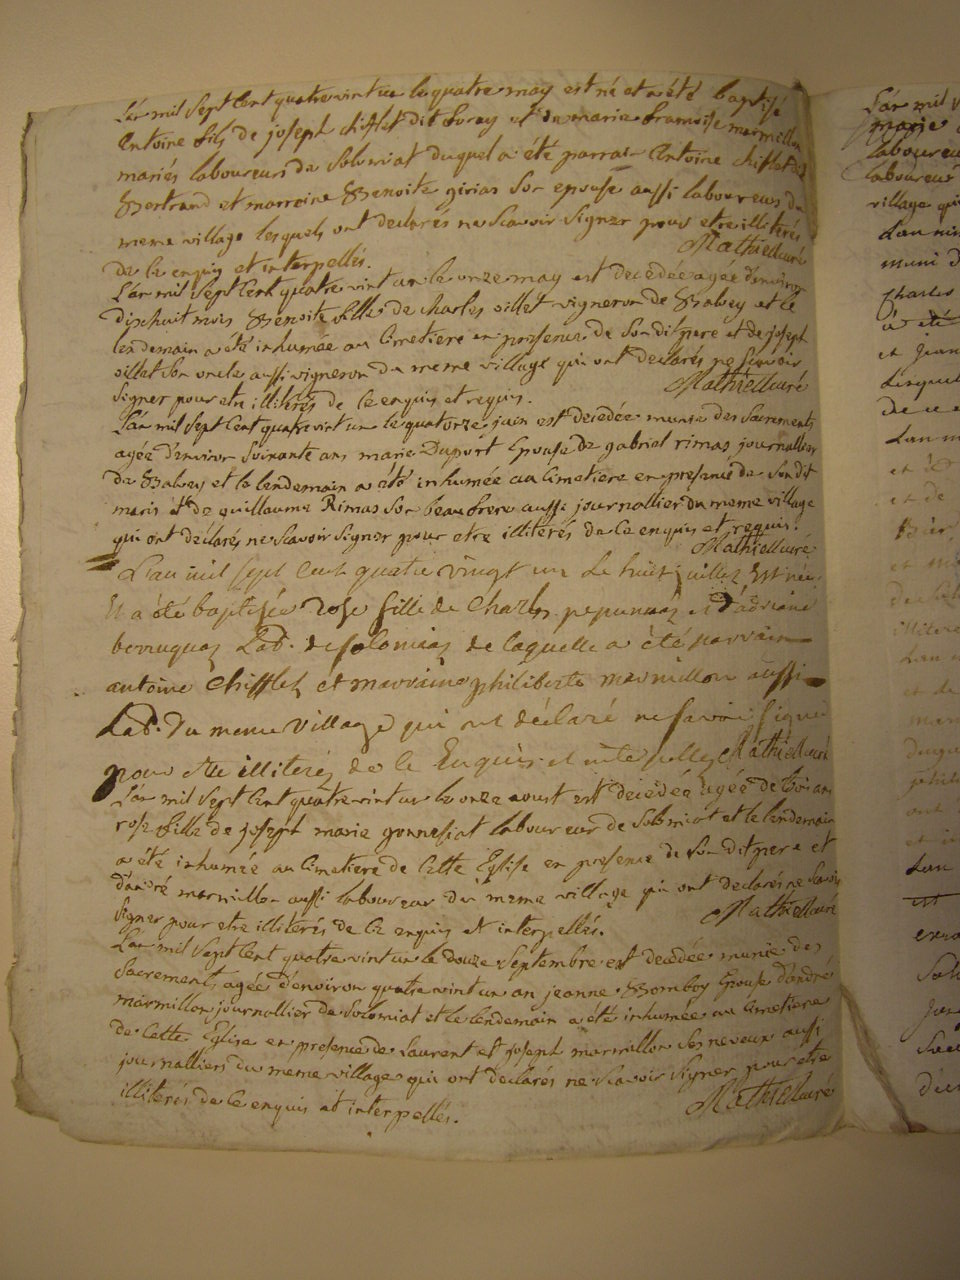 L'an mil sept cent quatre vint un le quatre may est né et a été baptisé
Antoine fils de joseph chifflet dit Buray et de marie Francoise marmillon
mariés laboureurs de Solomiat duquel a été parrain Antoine chifflet dit
Bertrand et marraine Benoite girias son epouse aussi laboureurs du
meme village lesquels ont declarés ne scavoir signer pour etre illiterés
de ce enquis et interpellés. Mathieu curé
L'an mil sept cent quatre vint un le onze may est decedée agée d'environ
dixhuit mois Benoite fille de charles sillet vigneron de Balvey et le
lendemain a été inhumée au Cimetiere en presence de son dit pere et de joseph
sillet son oncle aussi vigneron du meme village qui ont declarés ne scavoir
signer pour etre illiterés de ce enquis et requis. Mathieu curé
L'an mil sept cent quatre vint un le quatorze juin est decedée munie des Sacrements
agée d'environ soixante ans marie Duport Epouse de gabriel rimas journallier
de Balvey et le lendemain a été inhumée au Cimetiere en presence de son dit
maris et de guillaume Rimas son beau frere aussi journallier du meme village
qui ont déclarés ne scavoir signer pour etre illiterés de ce enquis et requis.
Mathieu curé
L'an mil sept cent quatre vingt un le huit juillet est née
Et a été baptisée rose fille de Charles et d'adriane
Lab. de solomiat de laquelle a été parrain
antoine chifflet et marraine philiberte marmillon aussi
Lab. du meme village qui ont déclaré ne savoir signer
pour etre illiterés de ce Enquis et interpellés Mathieu curé
L'an mil sept cent quatre vint un le onze aoust est decedée agée de trois ans
rose fille de joseph marie gonnesiat laboureur de Solomiat et le lendemain
a été inhumée au Cimetiere de Cette Eglise en presence de son dit pere et
d'andré marmillon aussi laboureur du meme village qui ont declarés ne scavoir
signer pour etre illiterés de ce enquis et interpellés. Mathieu curé
L'an mil sept cent quatre vint un le douze septembre est decedée munie des
Sacrements agée d'environ quatre vint un an jeanne Bomboy Epouse d'andré
marmillon journallier de Solomiat et le lendemain a été inhumée au Cimetiere
de Cette Eglise en presence de Laurent et joseph marmillon ses neveux aussi
journalliers du meme village qui ont declarés ne scavoir signer pour etre
illiterés de ce enquis et interpellés. Mathieu curé
L'an mil s
marie
laboureu
laboureur
village qui
L'an mil
muni d
Charles
a été
et jean
lesquel
de ce e
L'an m
et
et de